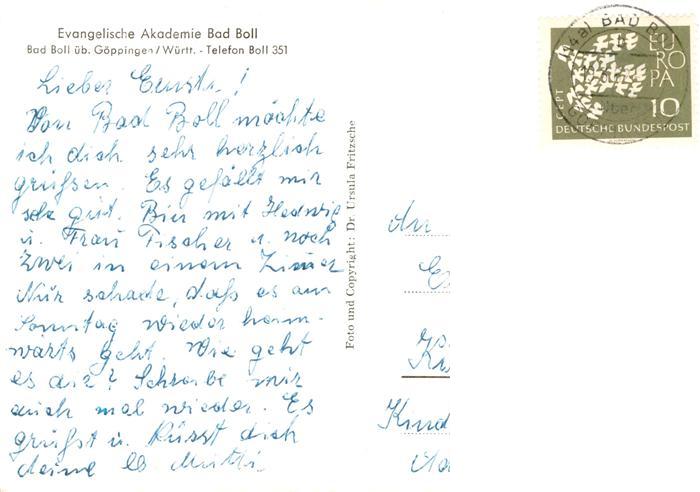 Evangelische Akademie Bad Boll
Bad Boll üb. Göppingen/Württ. - Telefon Boll 351
Lieber !
Von Bad Boll möchte
ich dich sehr herzlich
grüßen. Es gefällt mir
sehr gut. Bin mit Hedwig
u. Frau Fischer u. noch
zwei in einem Zimmer
Nur schade, daß es am
Sonntag wieder heim-
wärts geht. Wie geht
es dir? Schreibe mir
auch mal wieder. Es
grüßt u. küsst dich
deine lb Mutti
Foto und Copyright: Dr. Ursula Fritzsche
An
Kind
(14a) BAD B
EUROPA
CEPT
10
DEUTSCHE BUNDESPOST